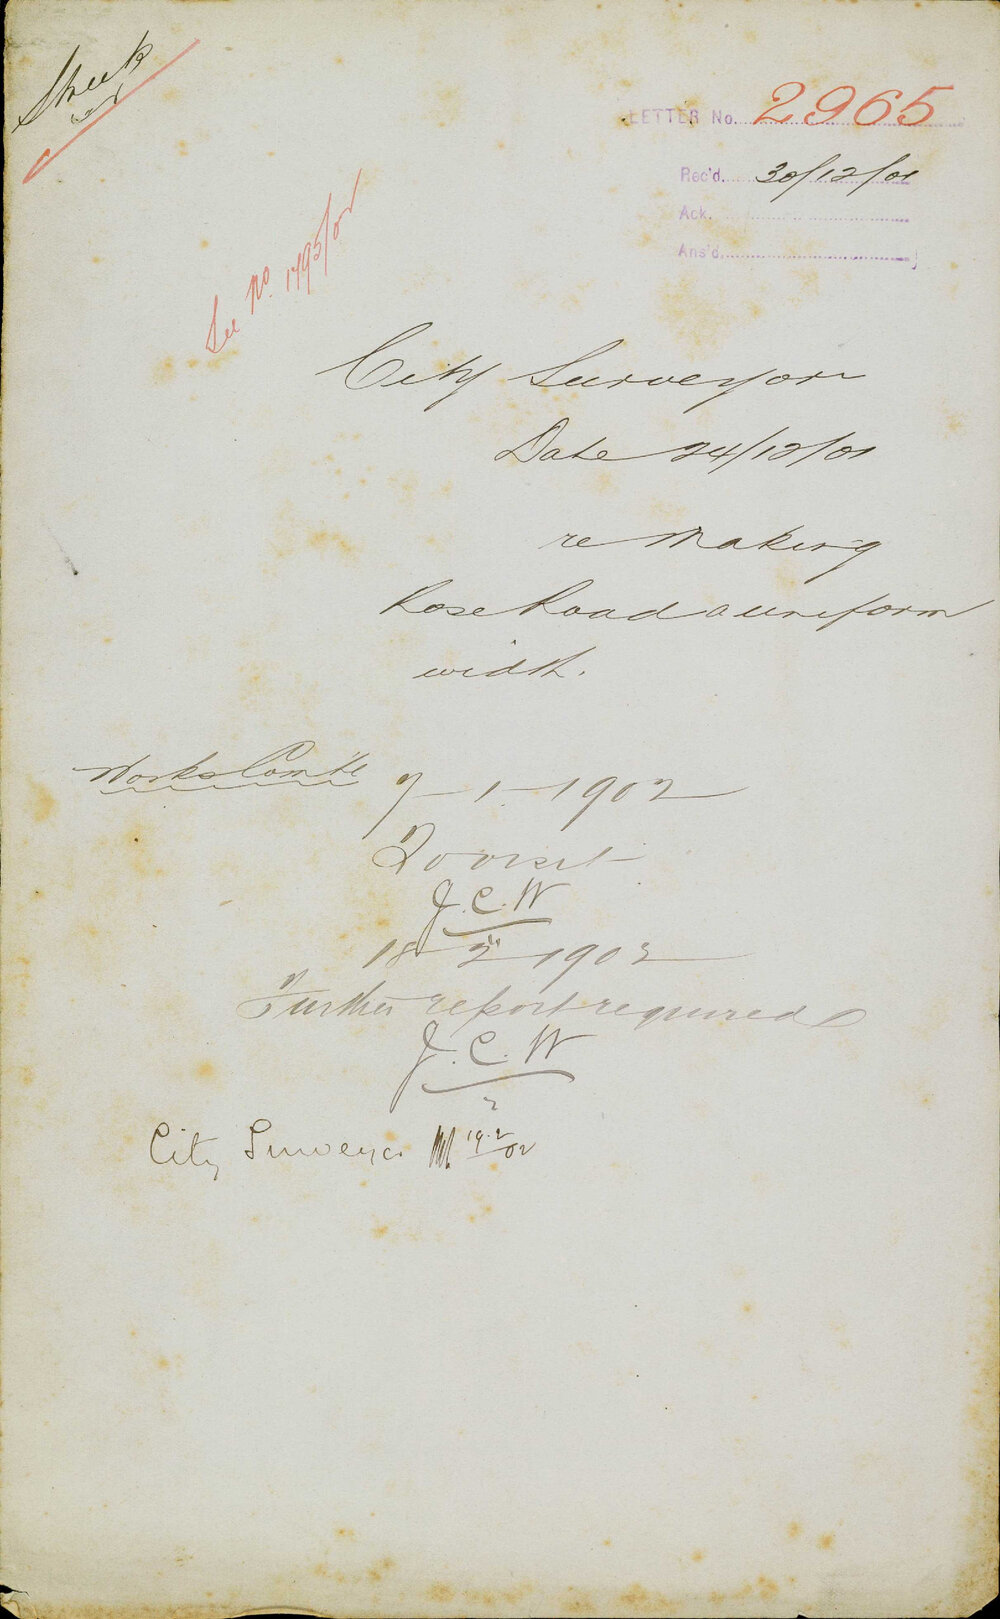 Streets
LETTER No. 2965
Rec'd. 30/12/01
Ack.
Ans'd.
See No. 1495/02
City Surveyor
Date 24/12/01
re Making
Rose Road a uniform
width.
Works Com'tee 7-1-1902
To visit
J.C.W
18-2-1902
Further report required
J.C.W
City Surveyor 19.2/02